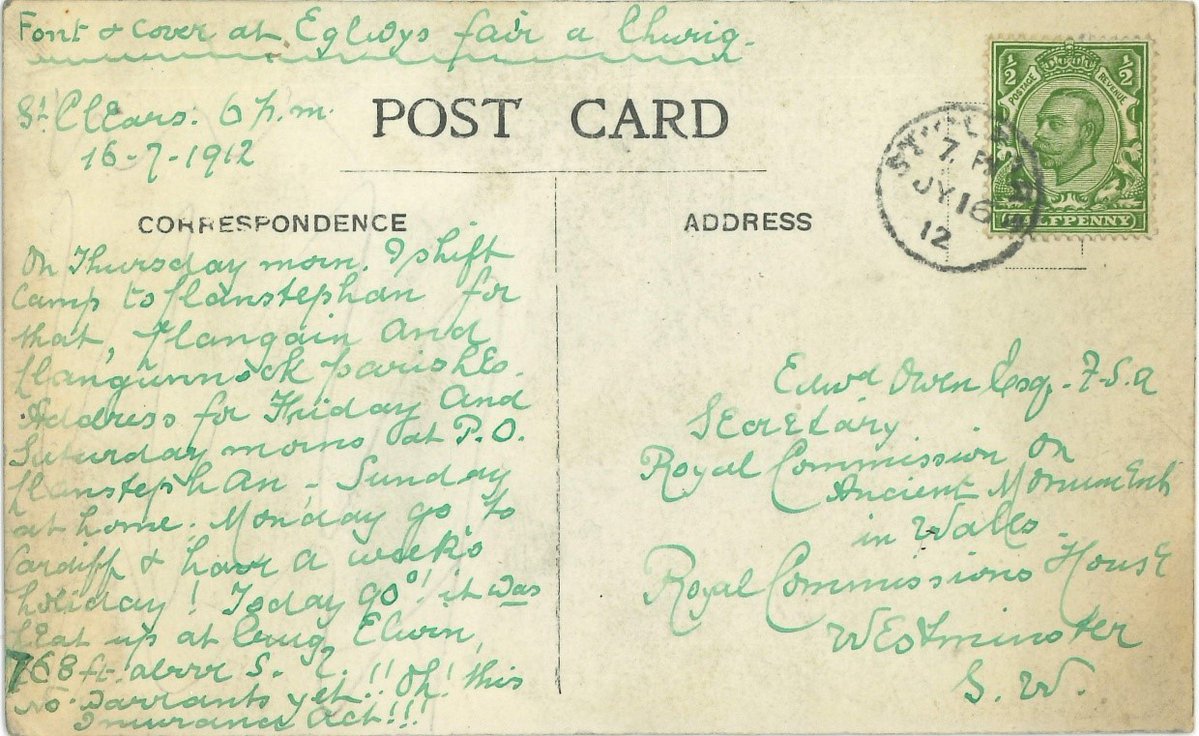 Font & Cover at Eglwys fair a Churig.
St. Clears. 6 p.m.
16-7-1912
POST CARD
CORRESPONDENCE
ADDRESS
On Thursday morn. I shift
Camp to Llanstephan for
that, Llangain and
Llangunnock parishes.
Address for Friday and
Saturday morns at P.O.
Llanstephan - Sunday
at home. Monday go to
Cardiff & have a week's
holiday! Today 90°! it was
heat up at Crug Elwin,
768 ft. above S. L.!! Oh! this
No warrants yet!! 
Insurance Act!!!
Edwd Owen Esq. F.S.A
Secretary
Royal Commission on
Ancient Monuments
in Wales
Royal Commissions House
Westminster
S. W.
½ ½
POSTAGE REVENUE
HALFPENNY
7. PM
JY 16
12